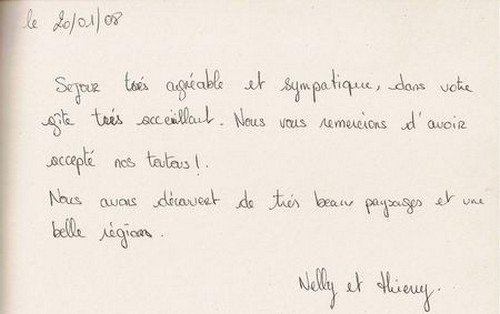 le 20/01/08
Sejour trés agréable et sympatique, dans votre
gîte trés acceuillant. Nous vous remercions d'avoir
accepté nos toutous!.
Nous avons découvert de trés beaux paysages et une
belle régions.
Nelly et thierry.